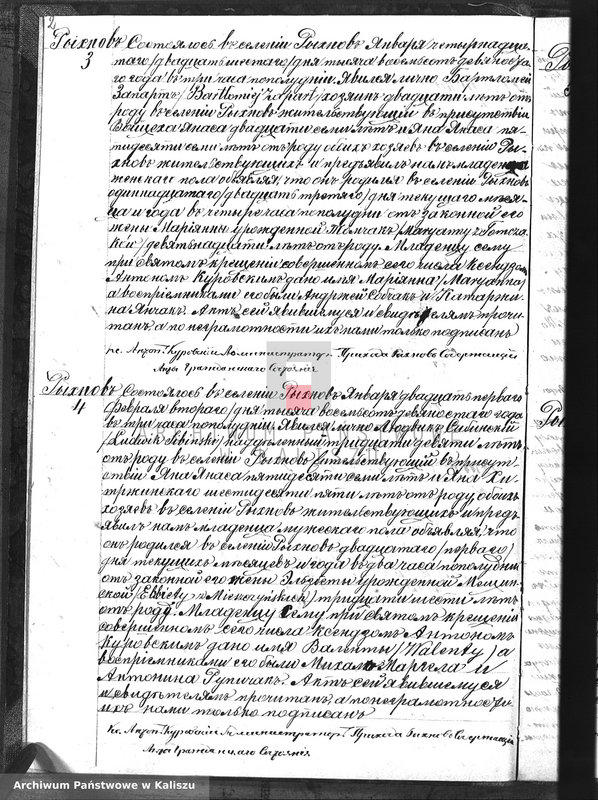 2
Рыхновъ Состоялось въ селеніи Рыхновъ Января четырнадца-
3 таго/двадцать шестаго/дня тысяча восемьсотъ девяностa-
го года въ три часа пополудни. Явился лично Бартломей
Запартъ /Bartłomiej Zapart/ хозяинъ двадцати лѣтъ отъ
роду въ селеніи Рыхновъ жительствующій въ присутствіи
Войцеха Янаса двадцати семи лѣтъ и Яна Янаса пя-
тидесяти семи лѣтъ отъ роду обоихъ хозяевъ въ селеніи Ры-
хновъ жительствующихъ и предъявилъ намъ младенца
женскаго пола объявляя, что онъ родился въ селеніи Рыхновъ
одиннадцатаго/двадцать третяго/дня текущаго мѣся-
ца и года въ четыре часа пополудни отъ законной его
жены Маріянны урожденной
девятьнадцати лѣтъ отъ роду. Младенцу сему
при святомъ крещеніи совершенномъ сего числа ксендзомъ
Антономъ Куровскимъ дано имя Маріянна /Maryanna/
а воспріемниками его были Андржей Собчакъ и Катаржи-
на Янчакъ. Актъ сей явившемуся и свидѣтелямъ прочи-
танъ а по неграмотности ихъ нами только подписанъ
Кс. Антон. Куровскій Администраторъ Прихода Рыхновъ Содержащій
Акты Гражданскаго Состоянія
Рыхновъ Состоялось въ селеніи Рыхновъ Января двадцать перваго
4 /Февраля втораго/дня тысяча восемьсотъ девяностаго года
въ три часа пополудни. Явился лично Людвикъ Сабинскій
/Ludwik Sabiński/ тридцати девяти лѣтъ
отъ роду въ селеніи Рыхновъ жительствующій въ присут-
ствіи Яна Янаса пятидесяти семи лѣтъ и Яна
шестидесяти пяти лѣтъ отъ роду, обоихъ
хозяевъ въ селеніи Рыхновъ жительствующихъ и предъ-
явилъ намъ младенца мужескаго пола объявляя, что
онъ родился въ селеніи Рыхновъ двадцатаго/перваго/
дня текущихъ мѣсяцевъ и года въ два часа пополудни
отъ законной его жены Эльжбеты урожденной
/Elżbiety z / тридцати шести лѣтъ
отъ роду. Младенцу сему при святомъ крещеніи
совершенномъ сего числа ксендзомъ Антономъ
Куровскимъ дано имя Валенты /Walenty/ а
воспріемниками его были Михалъ Маргела и
Антонина Рупичакъ. Актъ сей явившемуся
и свидѣтелямъ прочитанъ, а по неграмотности
ихъ нами только подписанъ
Кс. Антон. Куровскій Администраторъ Прихода Рыхновъ Содержащій
Акты Гражданскаго Состоянія
Archiwum Państwowe w Kaliszu